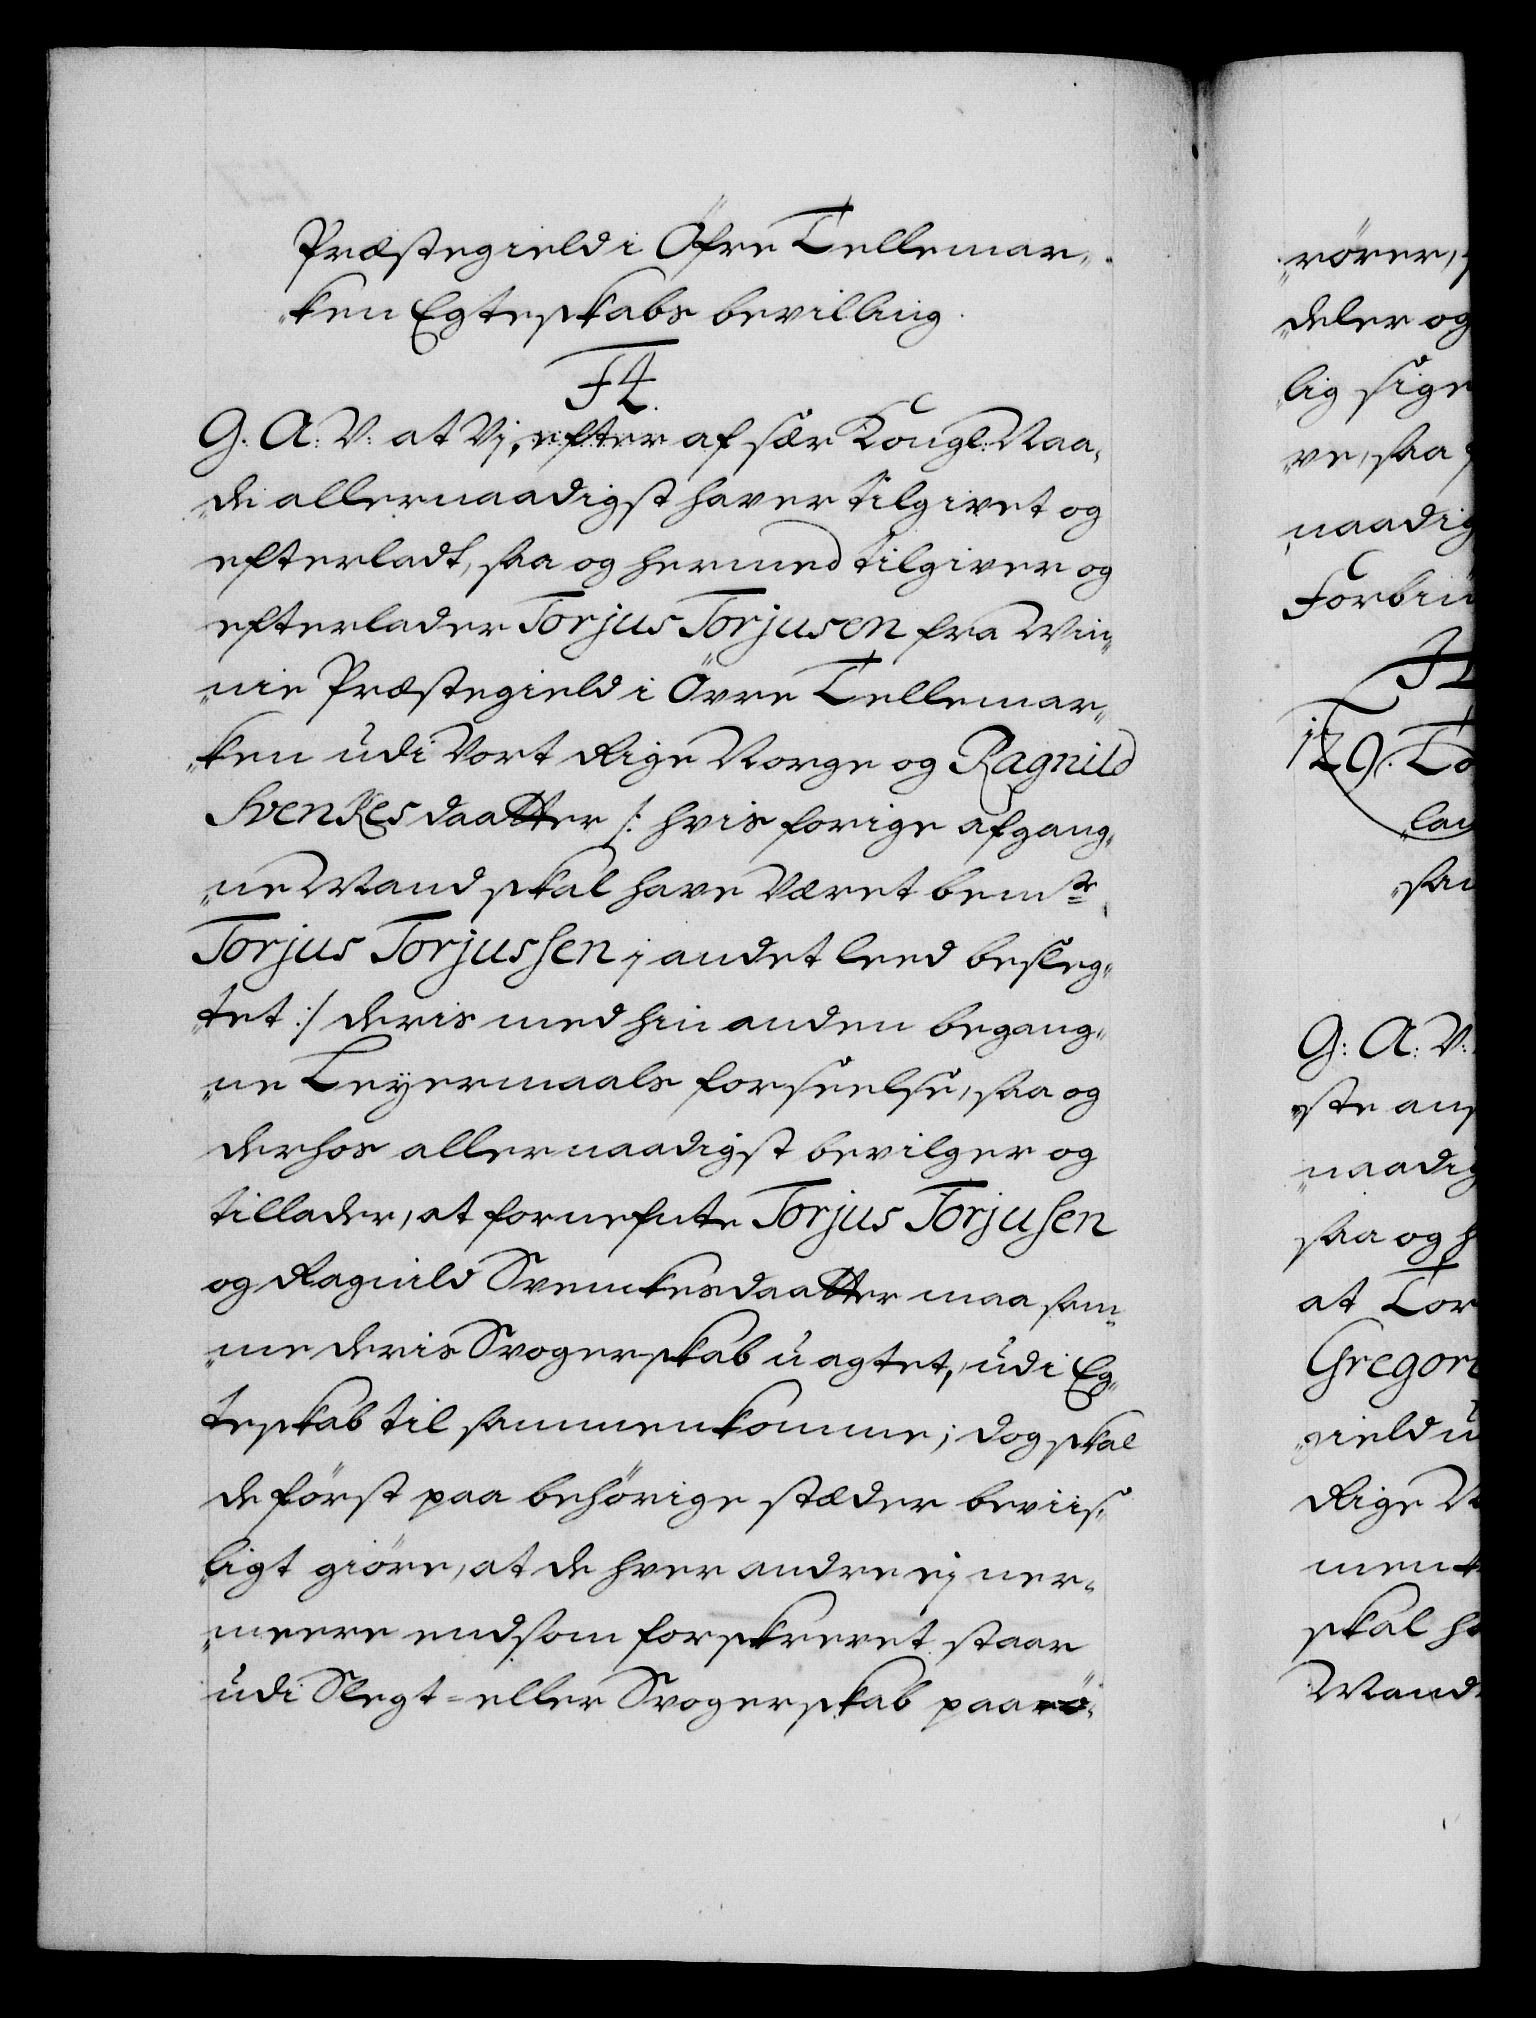 Præstegield i Öfre Tellemar„
„ken Egteskabs bevilling.
F4.
G: A: V: at Vj, efter af sær Kongl: Naa„
„de allernaadigst haver tilgivet og
efterladt, saa og hermed tilgiver og
efterlader Torjus Torjusen fra Win„
„nie Præstegield i Övre Tellemar„
„ken udi Vort Rige Norge og Ragnild
Svenkes daatter /: hvis forige afgang„
„ne Mand skal have Været bemte
Torjus Torjussen i andet leed besleg„
„tet :/ deris med hin anden begang„
„ne Leyermaals forseelse, saa og
derhos allernaadigst bevilger og
tillader, at fornefnte Torjus Torjusen
og Ragnild Svenkesdaatter maa sam„
„me deris Svogerskab uagtet, udi Eg„
teskab til sammenkomme; dog skal
de först paa behörige stæder beviis„
„ligt giöre, at de hver andre ej ner„
„meere end som forskrevet staar
udi Slegt= eller Svogerskab paarö„
rörer,
deler og
lig sige
ve, saa
naadig
Forbin
129. To
lau
san
G: A: V:
ste ans
naadig
saa og h
at Tor
Gregor
gield u
Rige N
ment
skal h
Mand